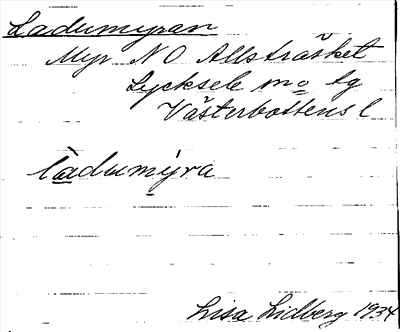 Ladumyran
Myr N O Allsträsket
Lycksele m o lg
Västerbottens l
ladumyra
Lisa Lidberg 1934